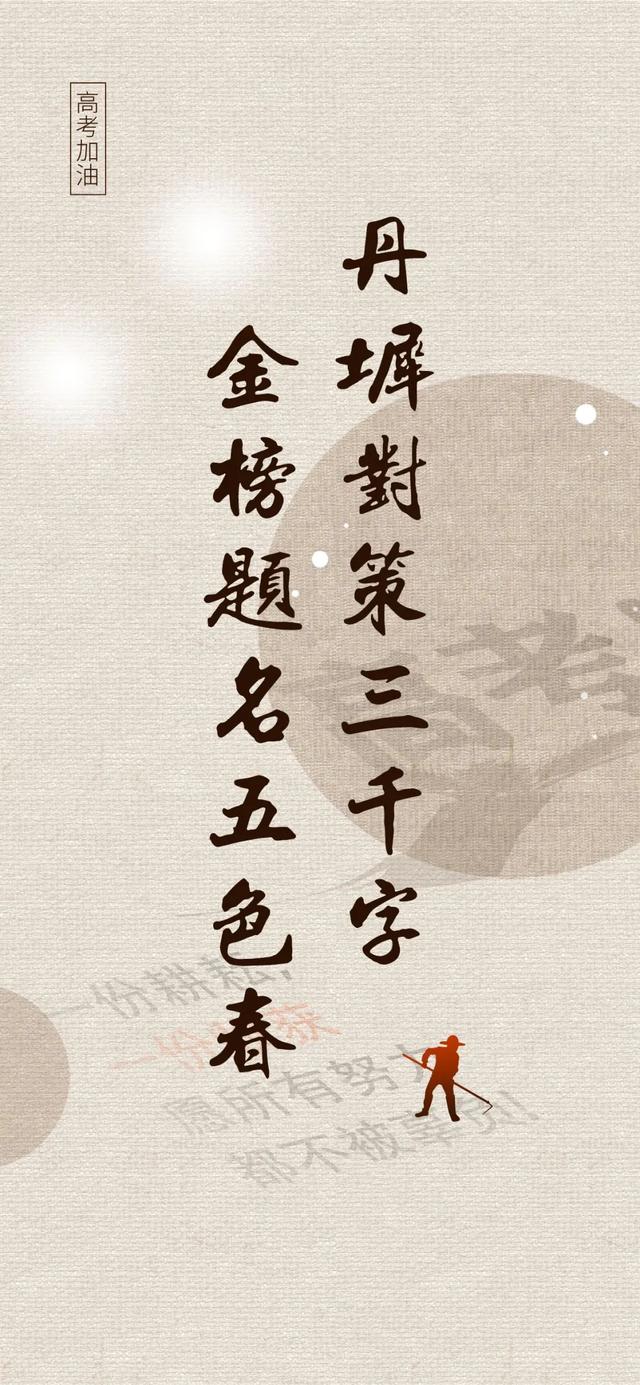 高考加油
丹墀對策三千字
金榜題名五色春
一份耕耘，
一份收获
愿所有努力
都不被辜负！